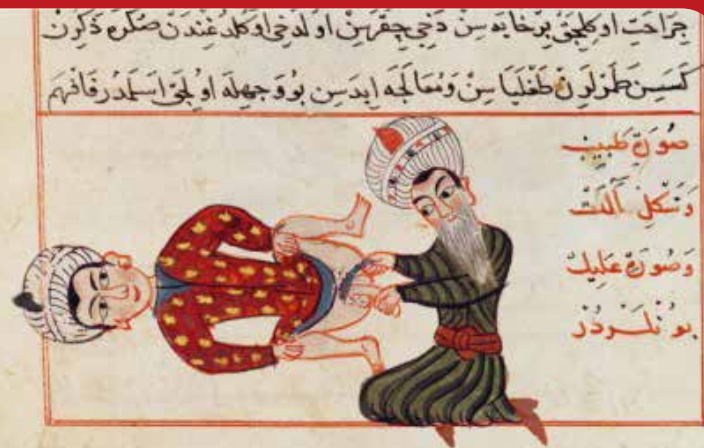 جراحت اولیجق بر خایه سن دخی چقرسن اول دخی اوکلدغندن صکره ذکرن
کسسن طمرلرن طغلیاسن ومعالجه ایدسن بو وجهله اولیجق اسلمدر فافهم
صورة طبیب
وشکل آلت
وصورة علیل
بونلردر